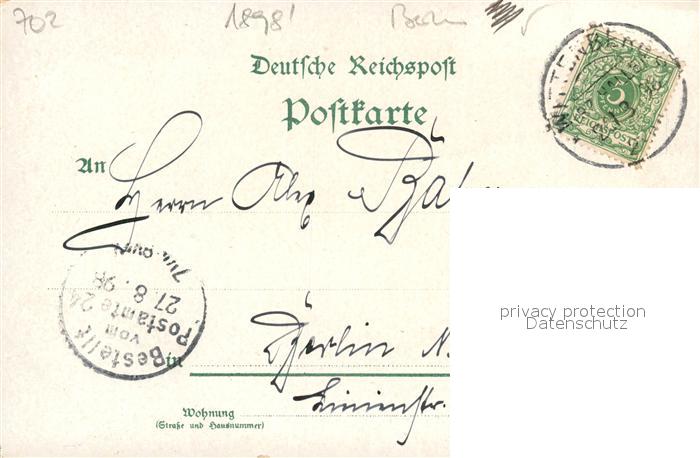 702 1898! Berlin
Deutsche Reichspost
Postkarte
WITTENBERG
3
REICHSPOST
An
Herrn Alex
Bestellt
vom
Postamte 24
27. 8. 98
in Berlin N.
Linienstr.
Wohnung
(Straße und Hausnummer)
privacy protection
Datenschutz